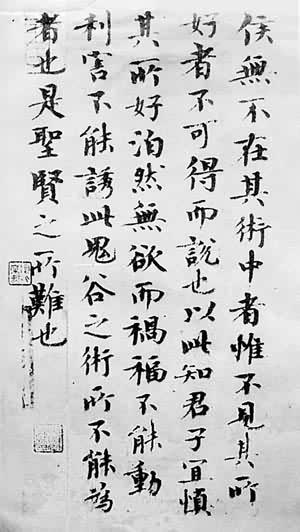 侯無不在其術中者惟不見其所
好者不可得而說也以此知君子宜慎
其所好泊然無欲而禍福不能動
利害不能誘此鬼谷之術所不能為
者也是聖賢之所難也